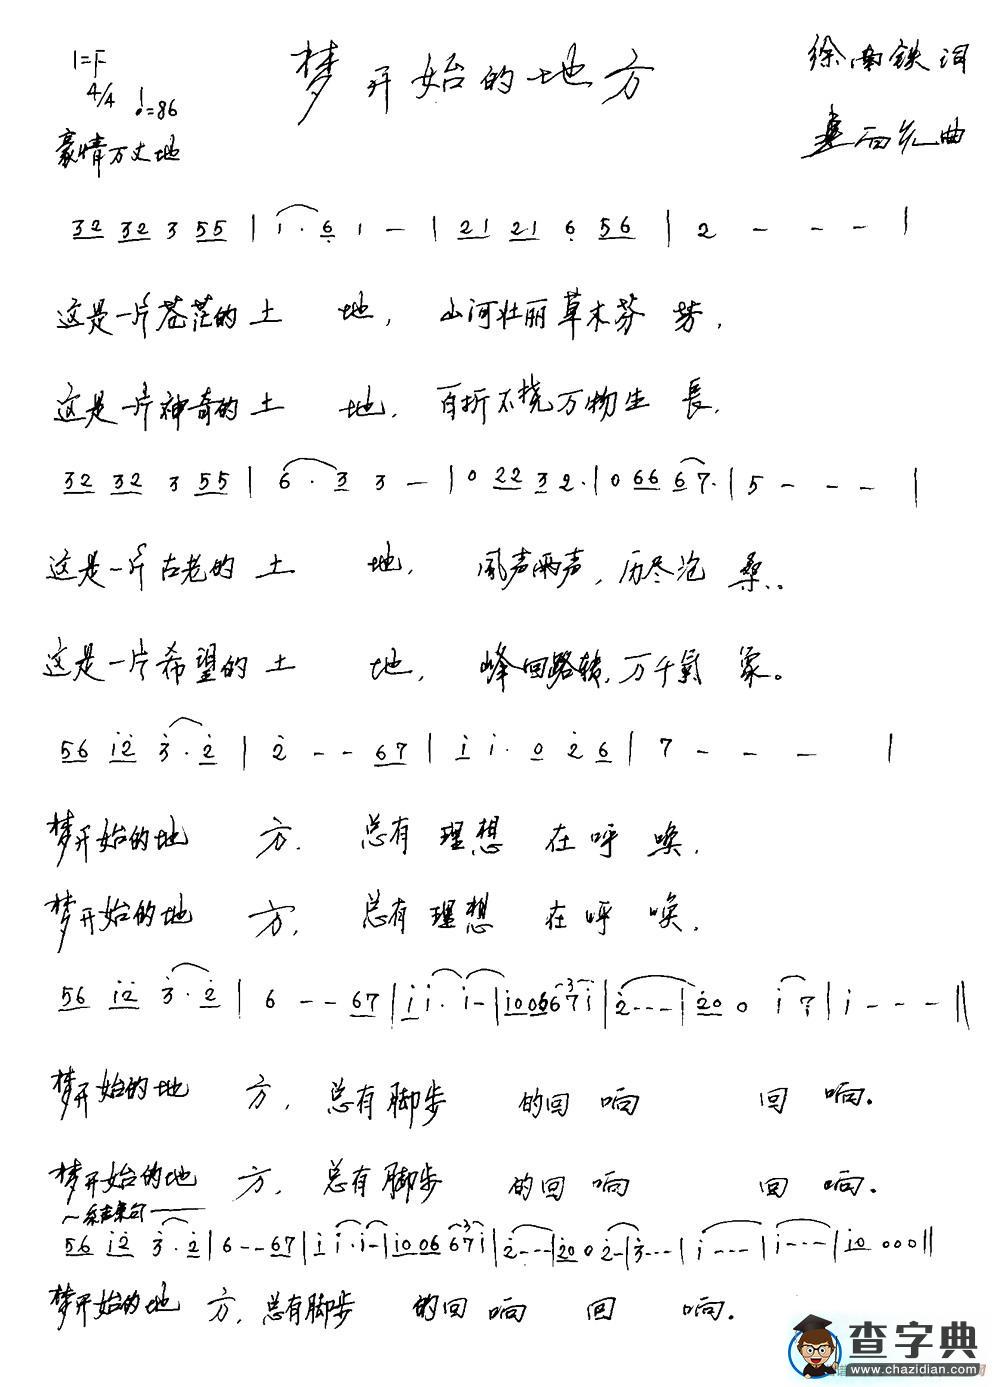 梦开始的地方
1=F
4/4 ♩=86
豪情万丈地
徐南铁词
曲
32 32 3 55 | i · 6 1 — | 21 21 6 56 | 2 — — — |
这是一片苍茫的土 地, 山河壮丽草木芬 芳,
这是一片神奇的土 地, 百折不挠万物生 長,
32 32 3 55 | 6 · 3 3 — | 0 22 3 2 · | 0 66 67 · | 5 — — — |
这是一片古老的土 地, 风声雨声,历尽沧 桑..
这是一片希望的土 地, 峰回路转,万千氣 象。
56 i2 3 · 2 | 2 — — 67 | i i · 0 2 6 | 7 — — — |
梦开始的地 方, 总有理想 在呼 唤,
梦开始的地 方, 总有理想 在呼 唤,
56 i2 3 · 2 | 6 — — 67 | i i · i — | i 0 066 67i | 2 — — — | 20 0 i 7 | i — — — ‖
梦开始的地 方, 总有脚步 的回 响 回 响.
梦开始的地 方, 总有脚步 的回 响 回 响.
~结束句
56 i2 3 · 2 | 6 — — 67 | i i · i — | i 0 06 67i | 2 — — — | 20 0 2 — | 3 — — — | i — — — | i — — — | i0 0 0 0 ‖
梦开始的地 方,总有脚步 的回 响 回 响.
查字典
www.chazidian.com